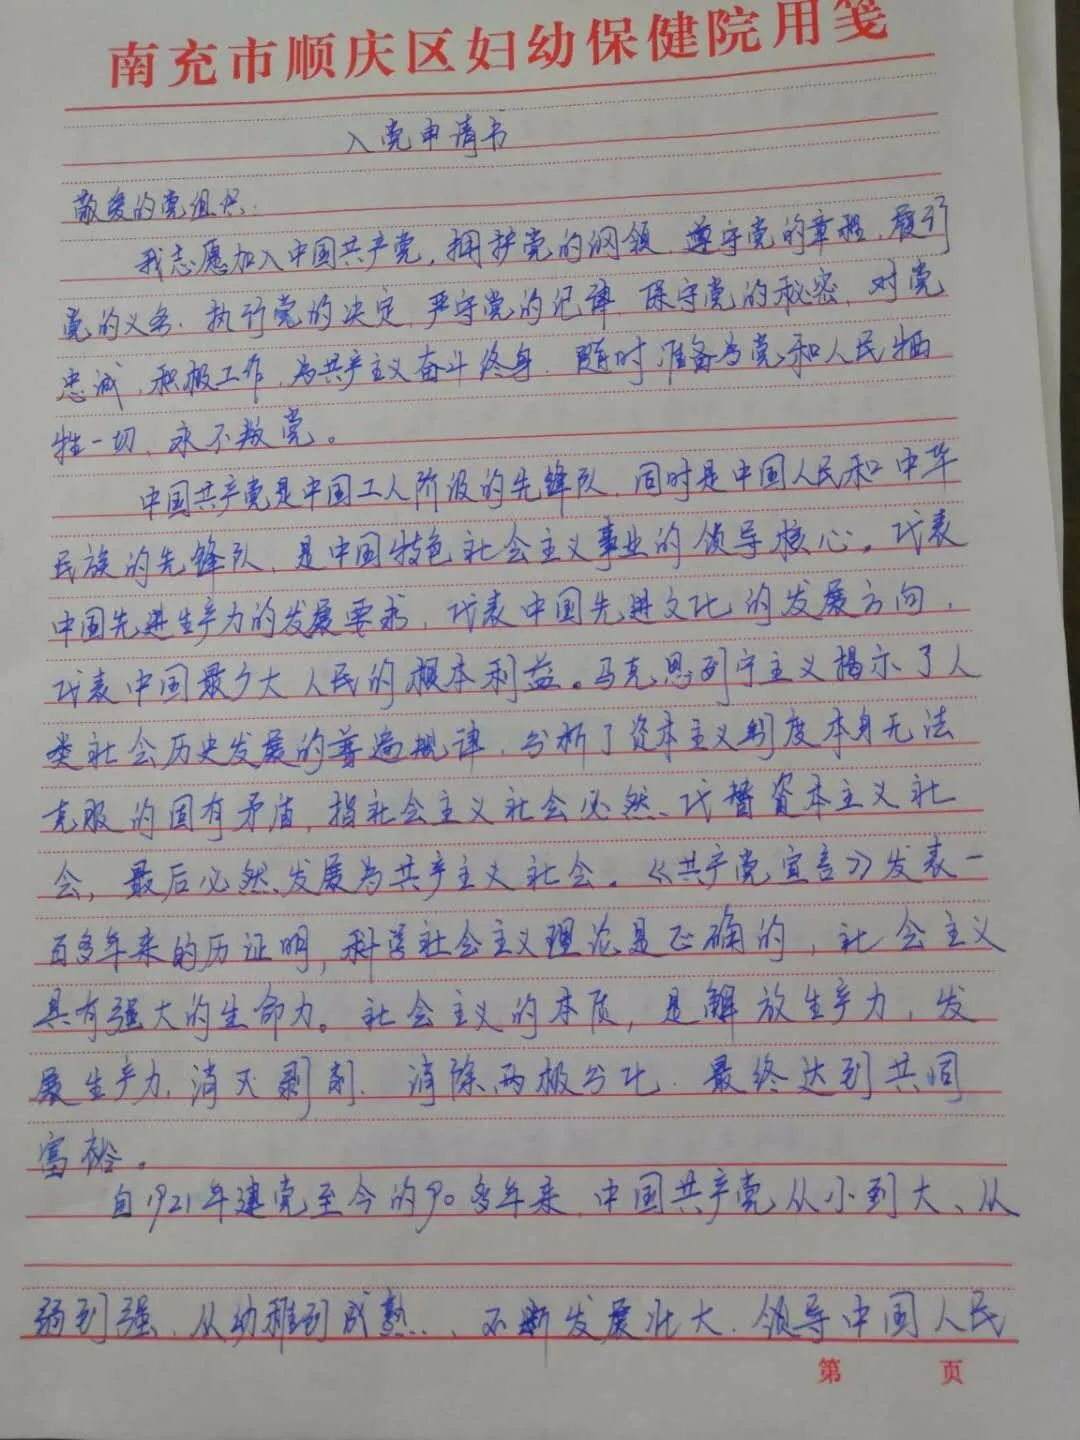 南充市顺庆区妇幼保健院用笺
入党申请书
敬爱的党组织:
我志愿加入中国共产党,拥护党的纲领,遵守党的章程,履行
党的义务,执行党的决定,严守党的纪律,保守党的秘密,对党
忠诚,积极工作,为共产主义奋斗终身,随时准备为党和人民牺
牲一切,永不叛党。
中国共产党是中国工人阶级的先锋队,同时是中国人民和中华
民族的先锋队,是中国特色社会主义事业的领导核心。代表
中国先进生产力的发展要求,代表中国先进文化的发展方向,
代表中国最广大人民的根本利益。马克思列宁主义揭示了人
类社会历史发展的普遍规律,分析了资本主义制度本身无法
克服的固有矛盾,指社会主义社会必然代替资本主义社
会,最后必然发展为共产主义社会。《共产党宣言》发表一
百多年来的历证明,科学社会主义理论是正确的,社会主义
具有强大的生命力。社会主义的本质,是解放生产力,发
展生产力,消灭剥削,消除两极分化,最终达到共同
富裕。
自1921年建党至今的90多年来,中国共产党从小到大、从
弱到强、从幼稚到成熟、不断发展壮大,领导中国人民
第 页